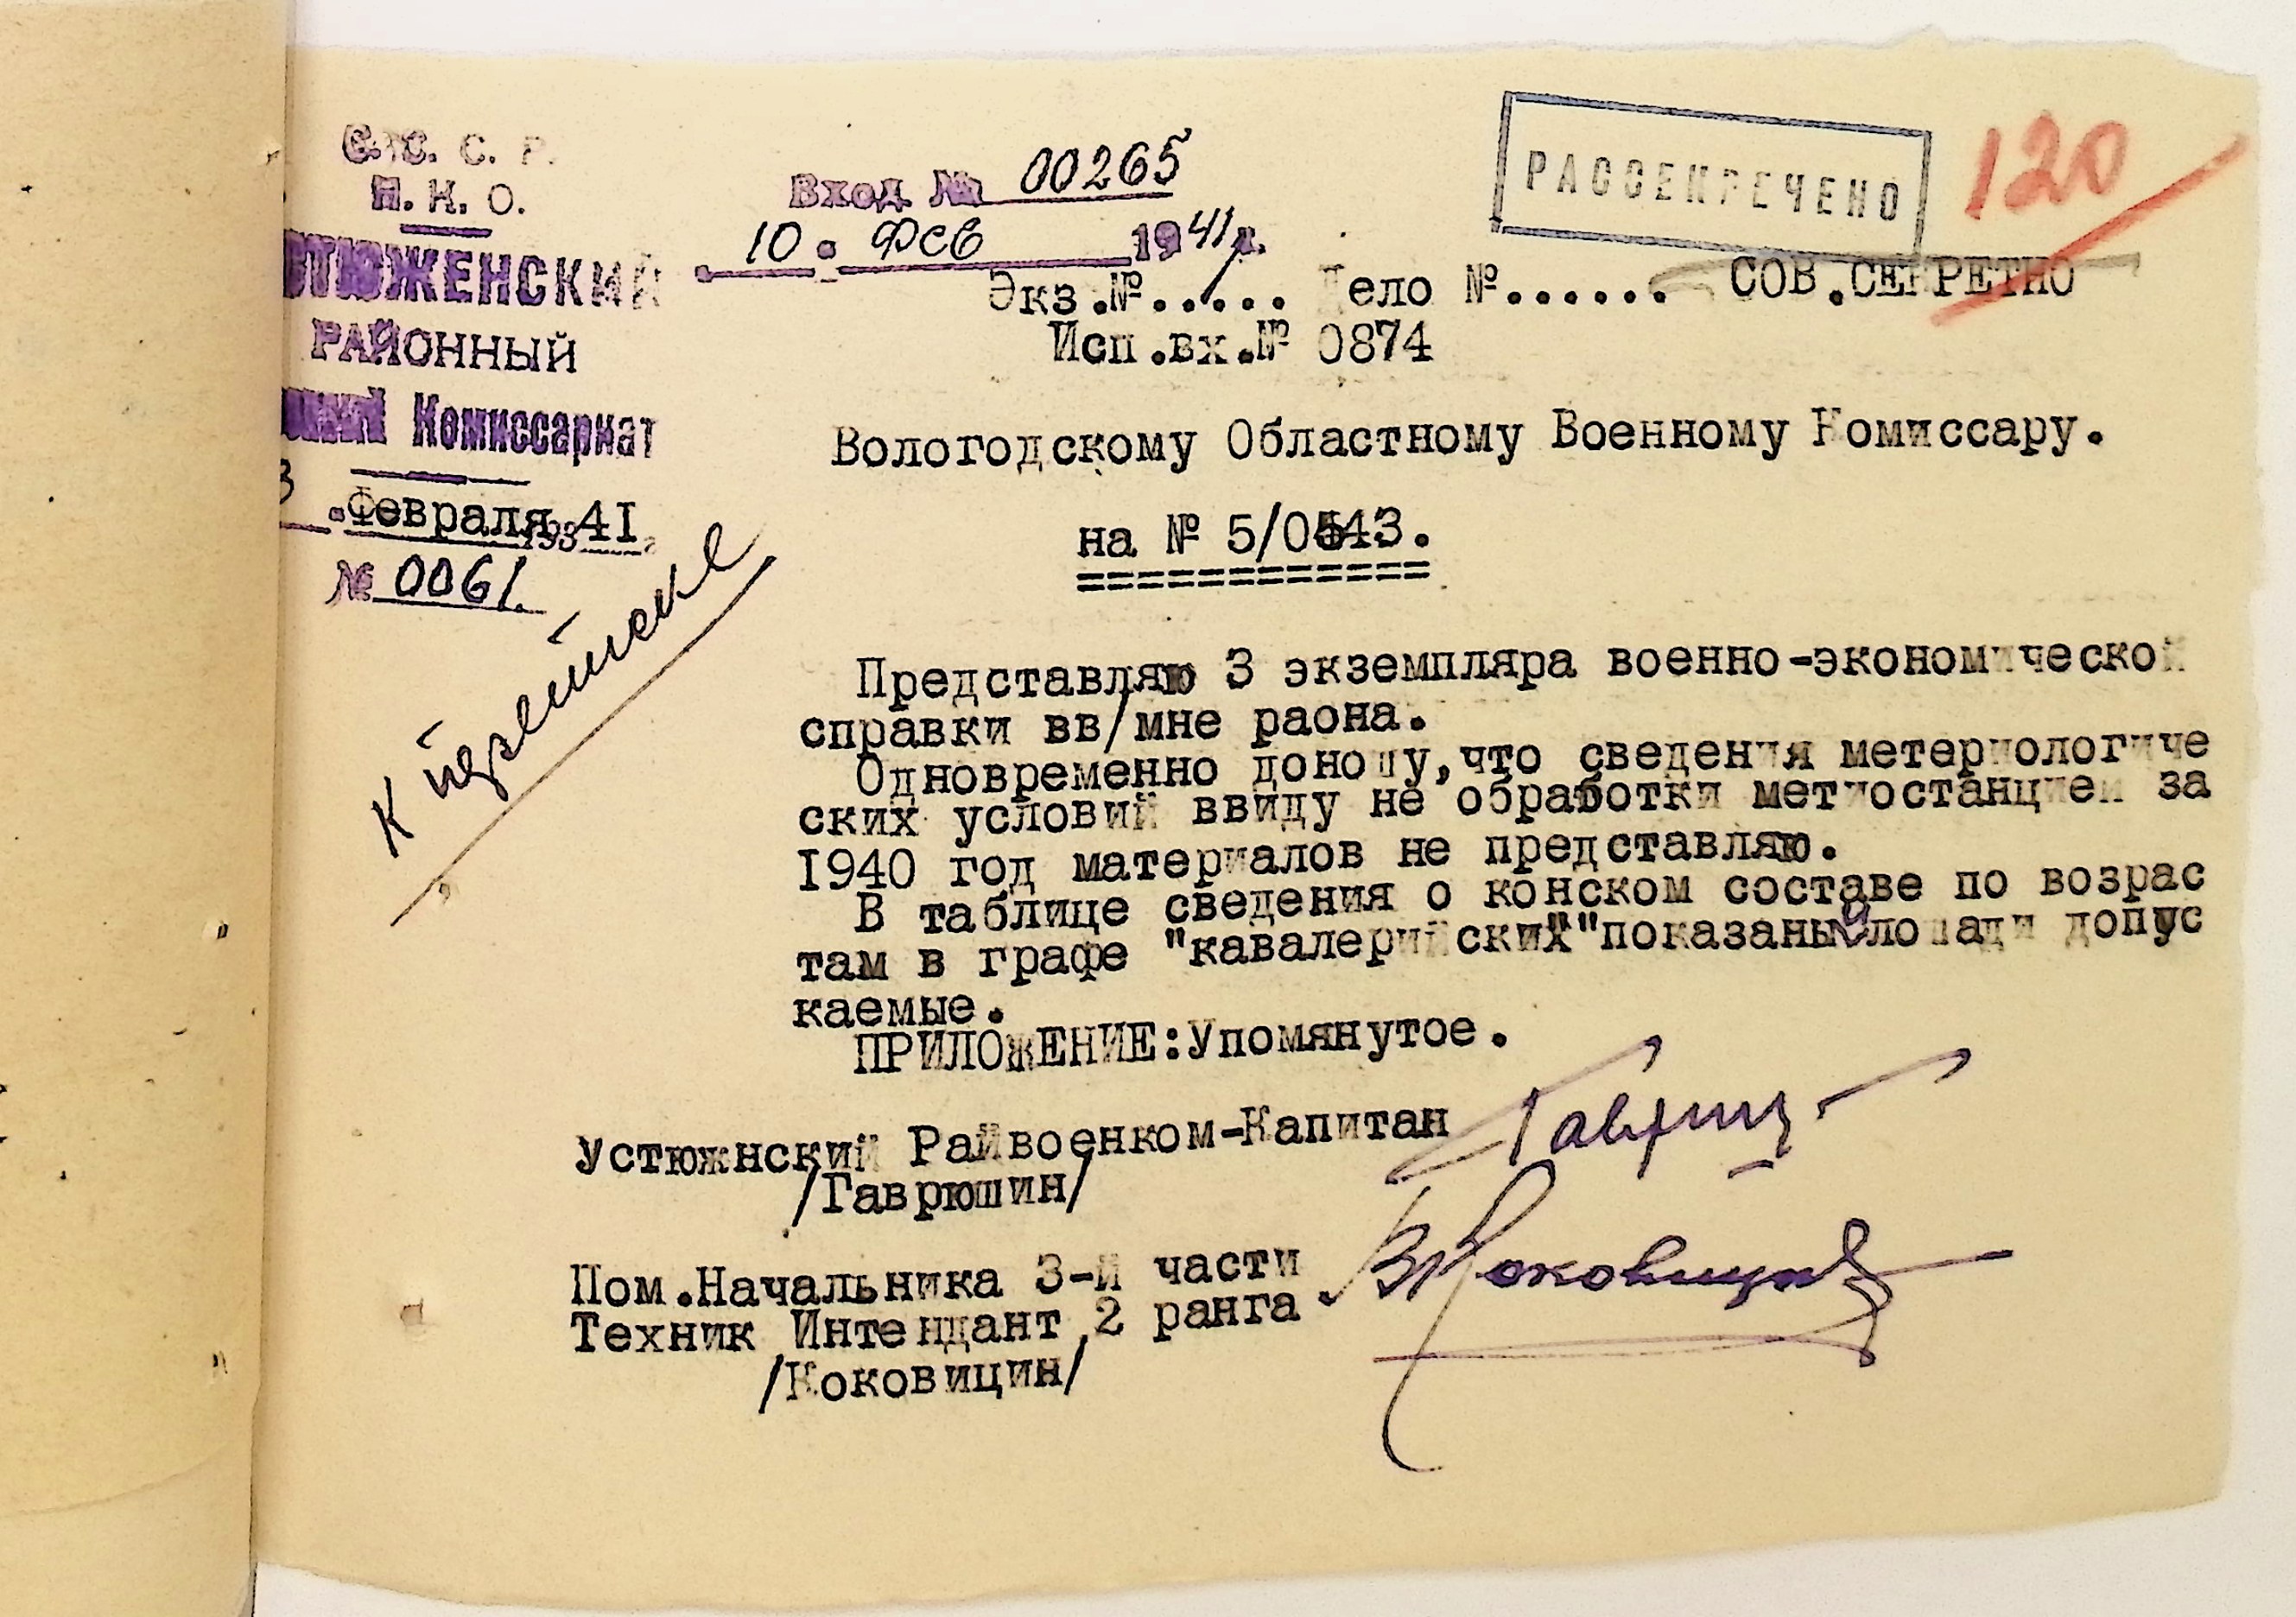 С. С. С. Р.
Н. К. О.
УСТЮЖЕНСКИЙ
РАЙОННЫЙ
Комиссариат
3 . Февраля 193 41
№ 0061.
К переписке
Вход № 00265
10 . Фев 1941 г.
РАССЕКРЕЧЕНО
120
Экз.№...... Дело №...... СОВ.СЕКРЕТНО
Исп.вх.№ 0874
Вологодскому Областному Военному Комиссару.
на № 5/0543.
============
Представляю 3 экземпляра военно-экономической
справки вв/мне раона.
Одновременно доношу,что сведения метериологиче
ских условий ввиду не обработки метиостанцией за
1940 год материалов не представляю.
В таблице сведения о конском составе по возрас
там в графе "кавалерийских"показаны лошади допус
каемые.
ПРИЛОЖЕНИЕ:Упомянутое.
Устюжнский Райвоенком-Капитан
/Гаврюшин/
Пом.Начальника 3-й части
Техник Интендант 2 ранга
/Коковицин/